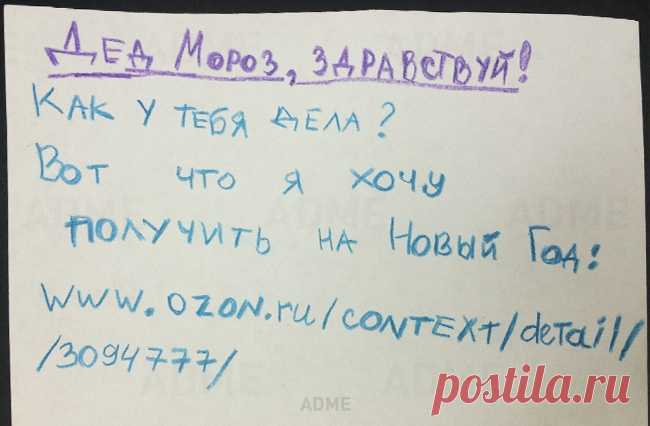 Дед Мороз, здравствуй!
Как у тебя дела?
Вот что я хочу
получить на Новый Год:
www.ozon.ru/context/detail/
/3094777/
ADME
postila.ru